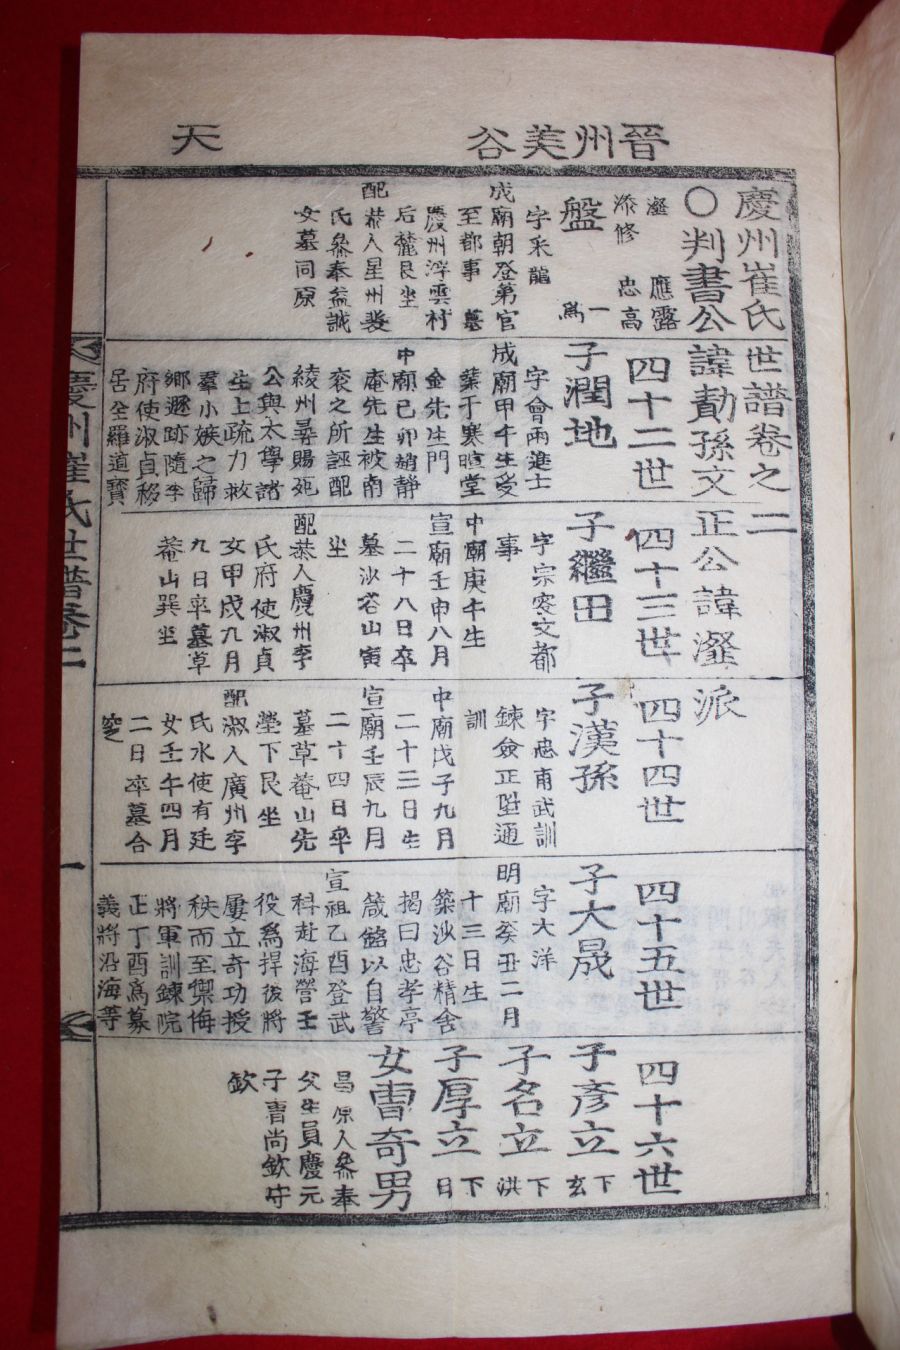 晉州美谷
天
慶州崔氏世譜卷之二
○判書公諱勣孫文正公諱瀣派
瀣 應露
添修 忠高
盤
一
爲
字采龍
成廟朝登第官
至都事 墓
慶州浮雲村
后麓艮坐
配恭人星州裴
氏參奉益誠
女墓同原
四十二世
子潤地
字會兩進士
成廟甲午生受
業于寒暄堂
金先生門
中廟己卯趙靜
庵先生被南
袞之所誣配
綾州尋賜死
公與太學諸
生上疏力救
羣小嫉之歸
鄉遯跡隨李
府使淑貞移
居全羅道寶
四十三世
子繼田
字宗峑文都
事
中廟庚午生
宣廟壬申八月
二十八日卒
墓沙谷山寅
坐
配恭人慶州李
氏府使淑貞
女甲戌九月
九日卒墓草
菴山巽坐
四十四世
子漢孫
字忠甫武訓
鍊僉正陞通
訓
中廟戊子九月
二十三日生
宣廟壬辰九月
二十四日卒
墓草菴山先
塋下艮坐
配淑人廣州李
氏水使有廷
女壬午四月
二日卒墓合
窆
四十五世
子大晟
字大洋
明廟癸丑二月
十三日生
築沙谷精舍
揭曰忠孝亭
箴銘以自警
宣祖乙酉登武
科赴海營壬
役爲捍後將
屢立奇功授
秩而至禦侮
將軍訓鍊院
正丁酉爲募
義將沿海等
四十六世
子彥立 下玄
子名立 下洪
子厚立 下日
女曺奇男
昌原人參奉
父生員慶元
子曺尚欽守
欽
慶州崔氏世譜卷二
一